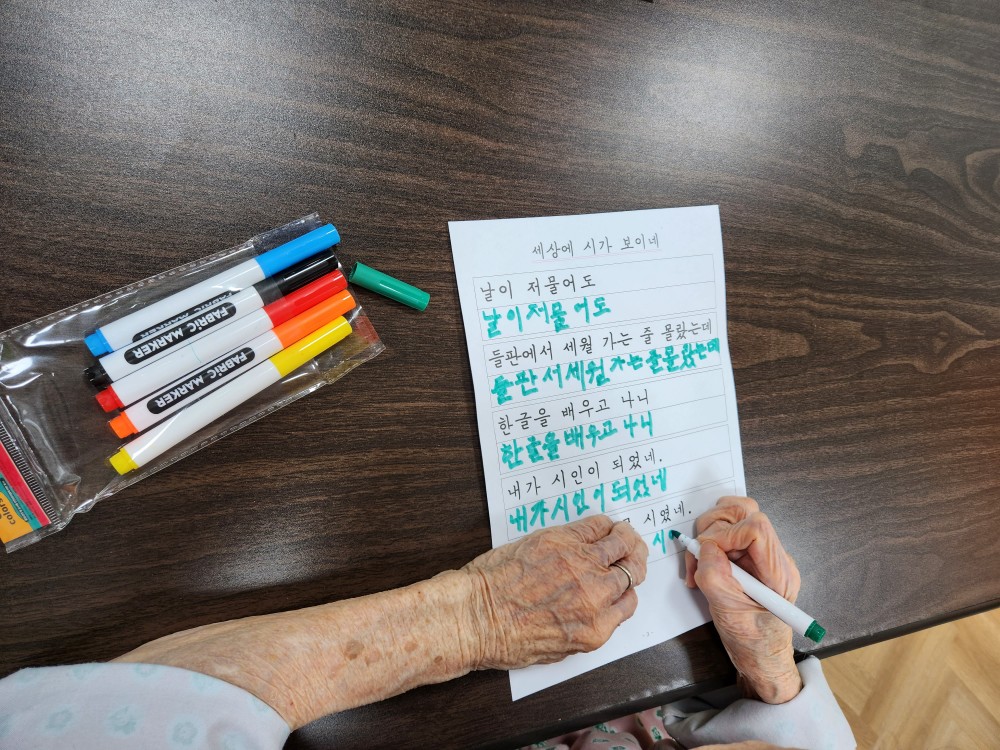 세상에 시가 보이네
날이 저물어도
날이 저물어도
들판에서 세월 가는 줄 몰랐는데
들판서 세월 가는 줄 몰랐는데
한글을 배우고 나니
한글을 배우고 나니
내가 시인이 되었네.
내가 시인이 되었네
시였네.
시
FABRIC MARKER
FABRIC MARKER
colors
- 2 -